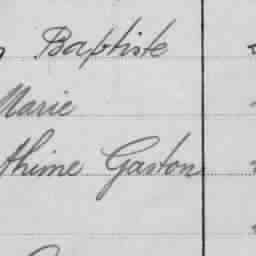 Baptiste
Marie
thime Gaston